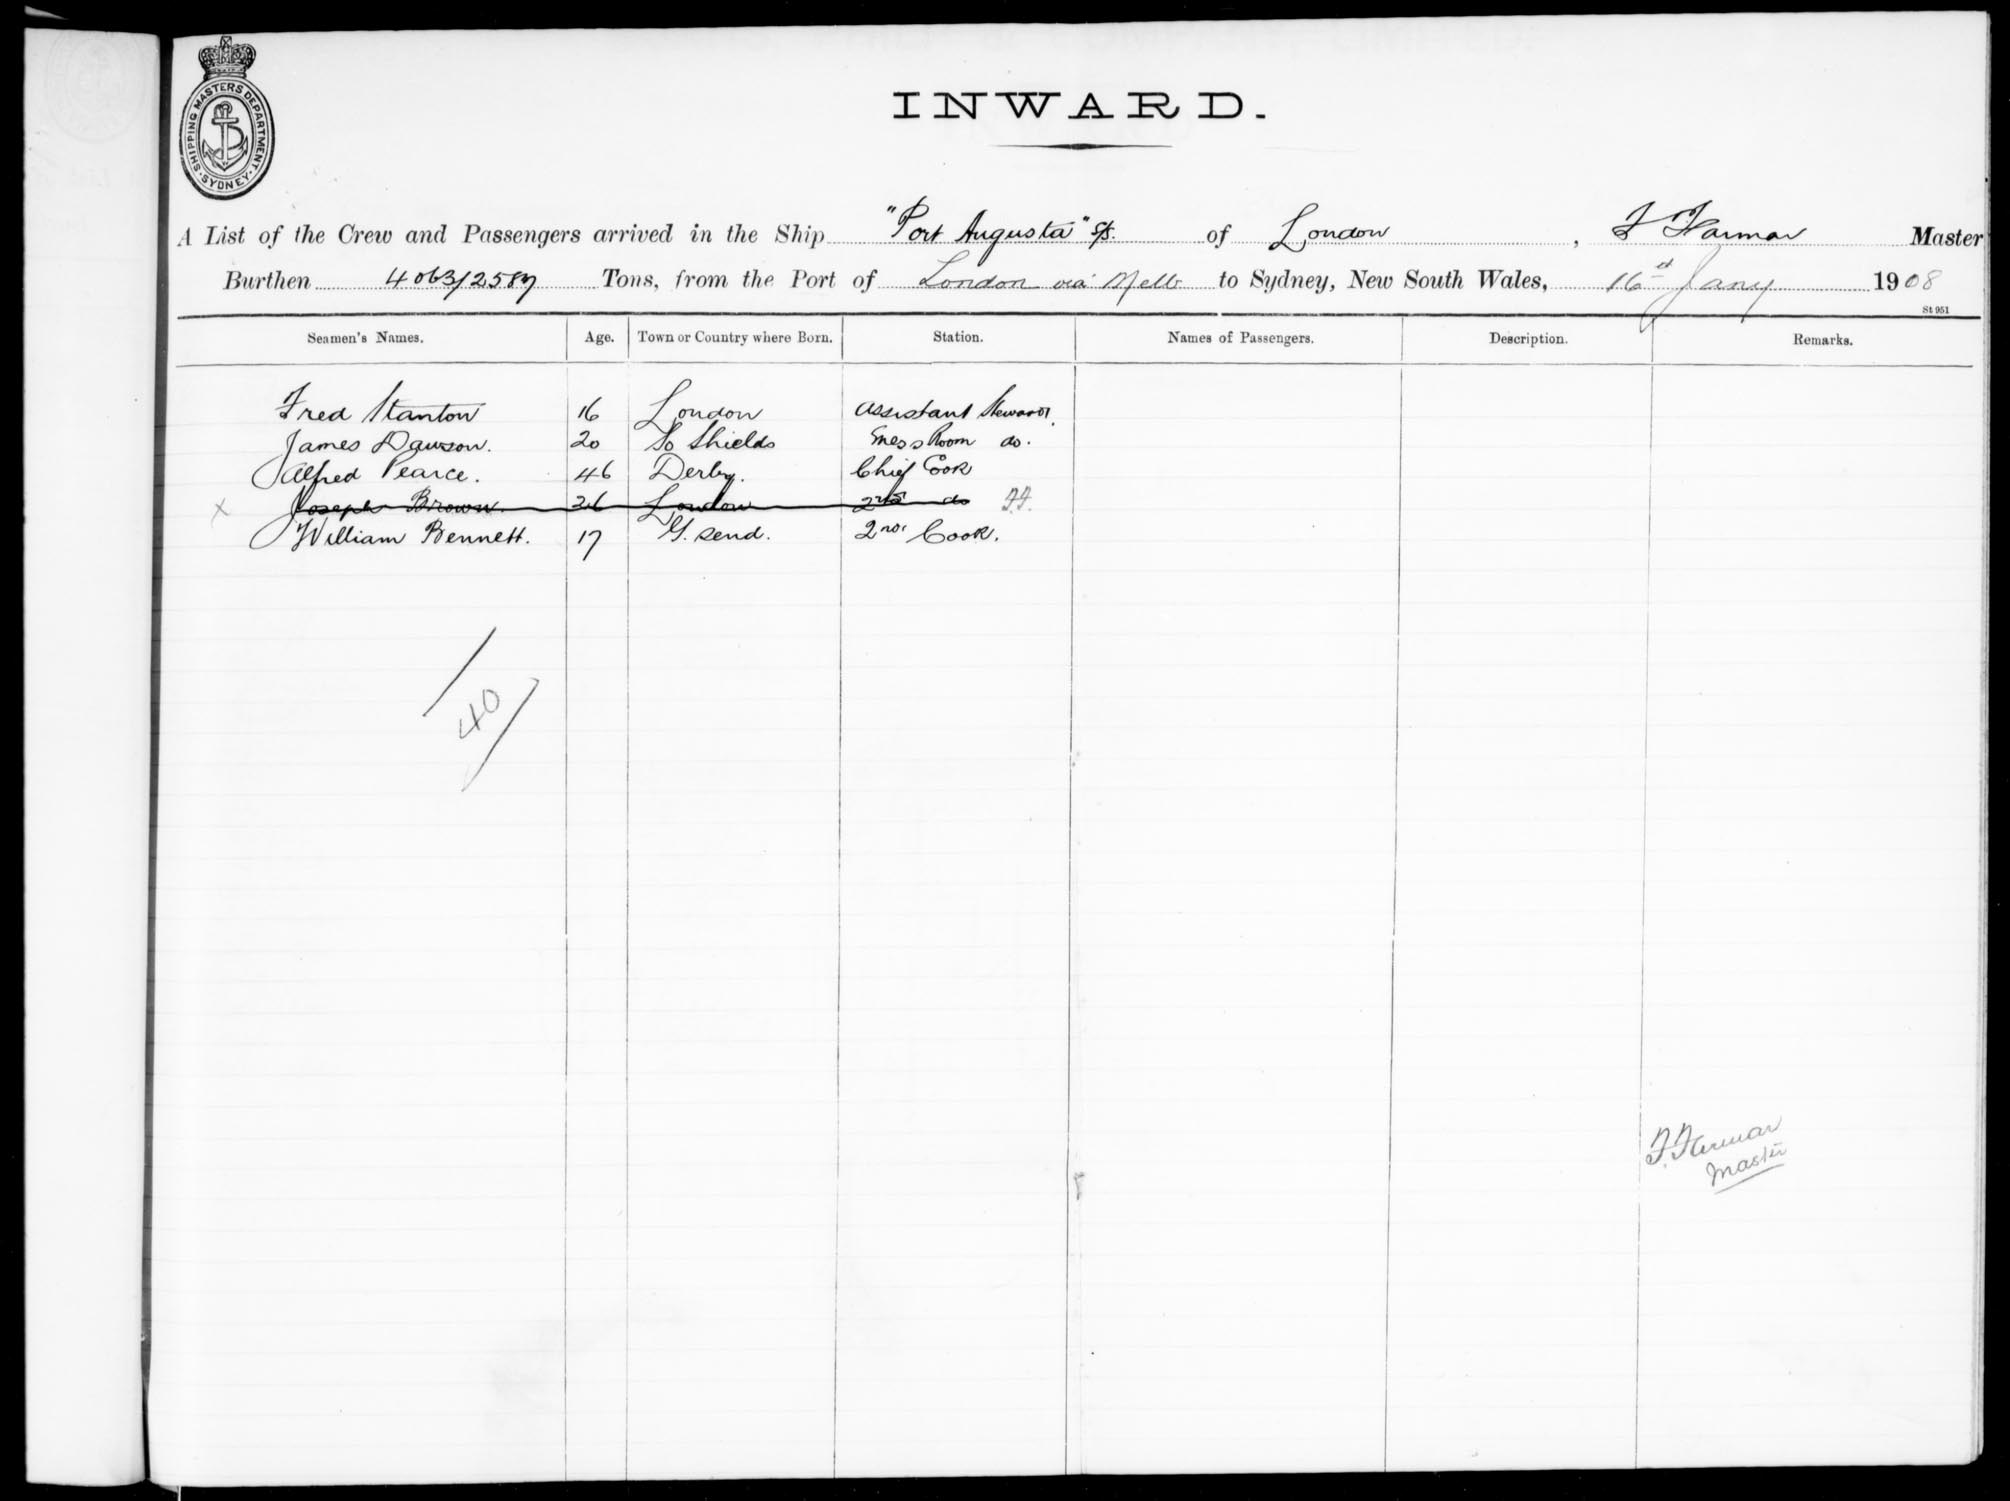 SHIPPING MASTERS DEPARTMENT
SYDNEY
INWARD.
A List of the Crew and Passengers arrived in the Ship "Port Augusta" S/S. of London, F Farmar Master
Burthen 4063/2587 Tons, from the Port of London via Melb to Sydney, New South Wales, 16th Jany 1908
St 951
Seamen's Names. Age. Town or Country where Born. Station. Names of Passengers. Description. Remarks.
Fred Stanton 16 London Assistant Steward.
James Dawson. 20 So Shields Mess Room do.
Alfred Pearce. 46 Derby. Chief Cook
x Joseph Brown. 26 London 2nd do F.F.
William Bennett. 17 G. send. 2nd Cook.
40
F. Farmar
Master